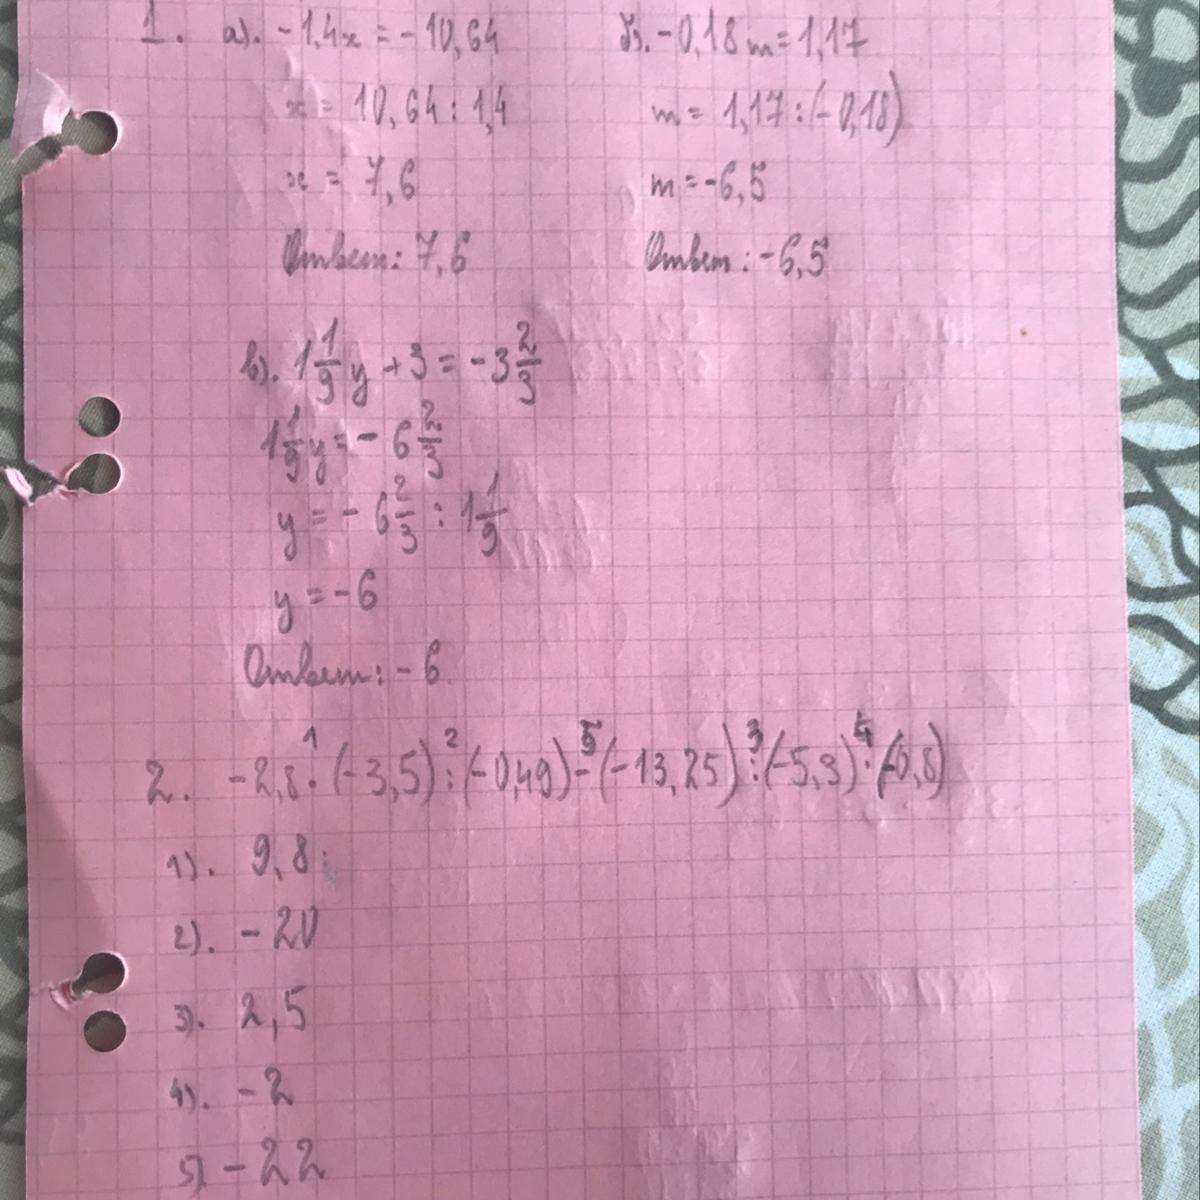 1. а). -1,4x = -10,64
x = 10,64 : 1,4
x = 7,6
Ответ: 7,6
б). -0,18m = 1,17
m = 1,17 : (-0,18)
m = -6,5
Ответ: -6,5
в). 1 1/9 y + 3 = -3 2/3
1 1/9 y = - 6 2/3
y = - 6 2/3 : 1 1/9
y = -6
Ответ: -6
1 2 5 3 4
2. -2,8 · (-3,5) : (-0,49) - (-13,25) : (-5,3) · (-0,8)
1). 9,8
2). -20
3). 2,5
4). -2
5) -22